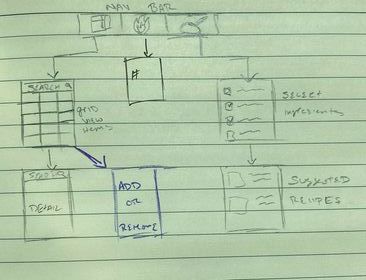 NAV BAR
SEARCH
#
grid
view
items
SELECT
ingredients
DETAIL
ADD
OR
REMOVE
SUGGESTED
RECIPES